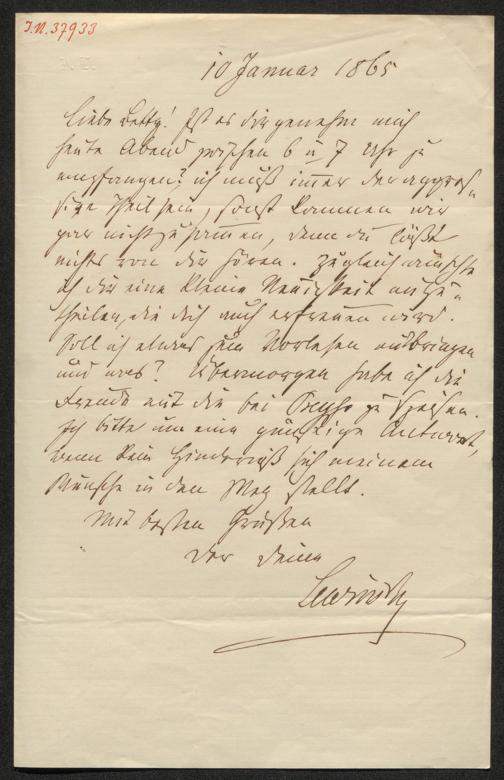 I.N. 37933
10 Januar 1865
Liebe Betty! Ist es dir genehm mich
heute Abend zwischen 6 u 7 Uhr zu
empfangen? ich muß immer der aggres-
sive Theil sein, sonst kommen wir
gar nicht zusammen, denn du läßt
nichts von dir hören. Zugleich wünschte
ich dir eine kleine Neuigkeit mitzu-
theilen, die dich auch erfreuen wird.
Soll ich etwas zum Vorlesen mitbringen
und was? Übermorgen habe ich die
Freude mit dir bei zu speisen.
Ich bitte um eine günstige Antwort,
wenn kein Hinderniß sich meinem
Wunsche in den Weg stellt.
Mit besten Grüßen
der deine
Lewinsky